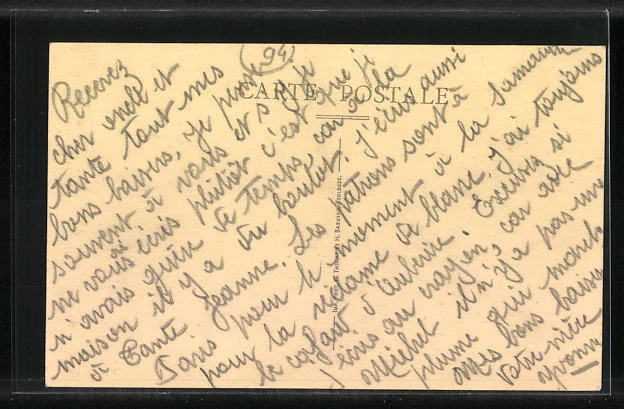 94
CARTE POSTALE
Recevez
cher oncle et
tante tout mes
bons baisers, je pense
souvent à vous et si je
ne vous ai écris plutôt c'est que je
n'avais guère de temps, car à la
maison il y a du boulot. J'écris aussi
à Tante Jeanne. Les patrons sont à
Paris pour le moment à la Samarit
pour la réclame de blanc, j'ai toujours
le cafard d'Auberive. Excusez si
j'écris au crayon, car avec
Michel il n'y a pas une
plume qui marche
Mes bons baisers
Votre nièce
Yvonne